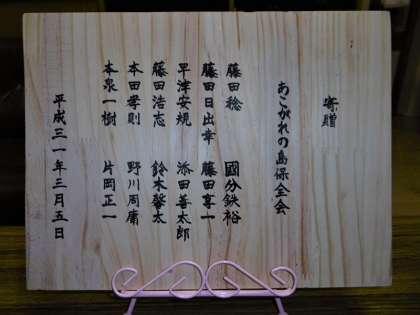 寄贈
あこがれの島保全会
藤田稔 國分鉄裕
藤田日出幸 藤田享一
早津安規 添田善太郎
藤田浩志 鈴木馨太
本田孝則 野川周庸
本泉一樹 片岡正一
平成三一年三月五日